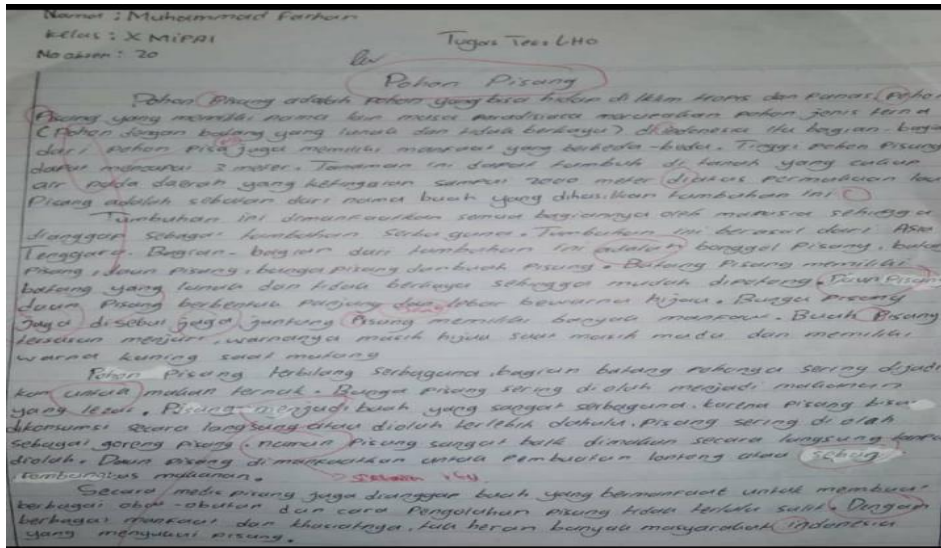 Nama : Muhammad Farhan
Kelas : X MIPA1
Tugas Teks LHO
No absen : 20
Pohon Pisang
Pohon Pisang adalah pohon yang bisa hidup di iklim tropis dan panas. Pohon
Pisang yang memiliki nama lain musa paradisiaca merupakan pohon jenis terna
(Pohon dengan batang yang lunak dan tidak berkayu) di indonesia itu bagian-bagian
dari pohon pisang juga memiliki manfaat yang berbeda-beda. Tinggi pohon pisang
dapat mencapai 3 meter. Tanaman ini dapat tumbuh di tanah yang cukup
air pada daerah yang ketinggian sampai 2000 meter diatas permukaan laut
Pisang adalah sebutan dari nama buah yang dihasilkan tumbuhan ini
Tumbuhan ini dimanfaatkan semua bagiannya oleh manusia sehingga
dianggap sebagai tumbuhan serba guna. Tumbuhan ini berasal dari Asia
Tenggara. Bagian-bagian dari tumbuhan ini adalah bonggol pisang, batang
Pisang, daun pisang, bunga pisang dan buah pisang. Batang Pisang memiliki
batang yang lunak dan tidak berkayu sehingga mudah dipotong. Daun Pisang
daun Pisang berbentuk panjang dan lebar bewarna hijau. Bunga pisang
Juga disebut juga jantung Pisang memiliki banyak manfaat. Buah Pisang
tersusun menjari, warnanya masih hijau saat masih muda dan memiliki
warna kuning saat matang
Pohon Pisang terbilang serbaguna, bagian batang pohonya sering dijadi
kan untuk makan ternak. Bunga pisang sering di olah menjadi makanan
yang lezat. Pisang menjadi buah yang sangat serbaguna, karena pisang bisa
dikonsumsi secara langsung atau diolah terlebih dahulu. pisang sering di olah
sebagai goreng pisang, namun pisang sangat baik dimakan secara langsung tanpa
diolah. Daun pisang dimanfaatkan untuk pembuatan lontong atau sebagai
Pembungkus makanan.
Secara medis pisang juga dianggap buah yang bermanfaat untuk membuat
berbagai obat-obatan dan cara pengolahan pisang tidak terlalu sulit. Dengan
berbagai manfaat dan khasiatnya, tak heran banyak masyarakat indonesia
yang menyukai pisang.